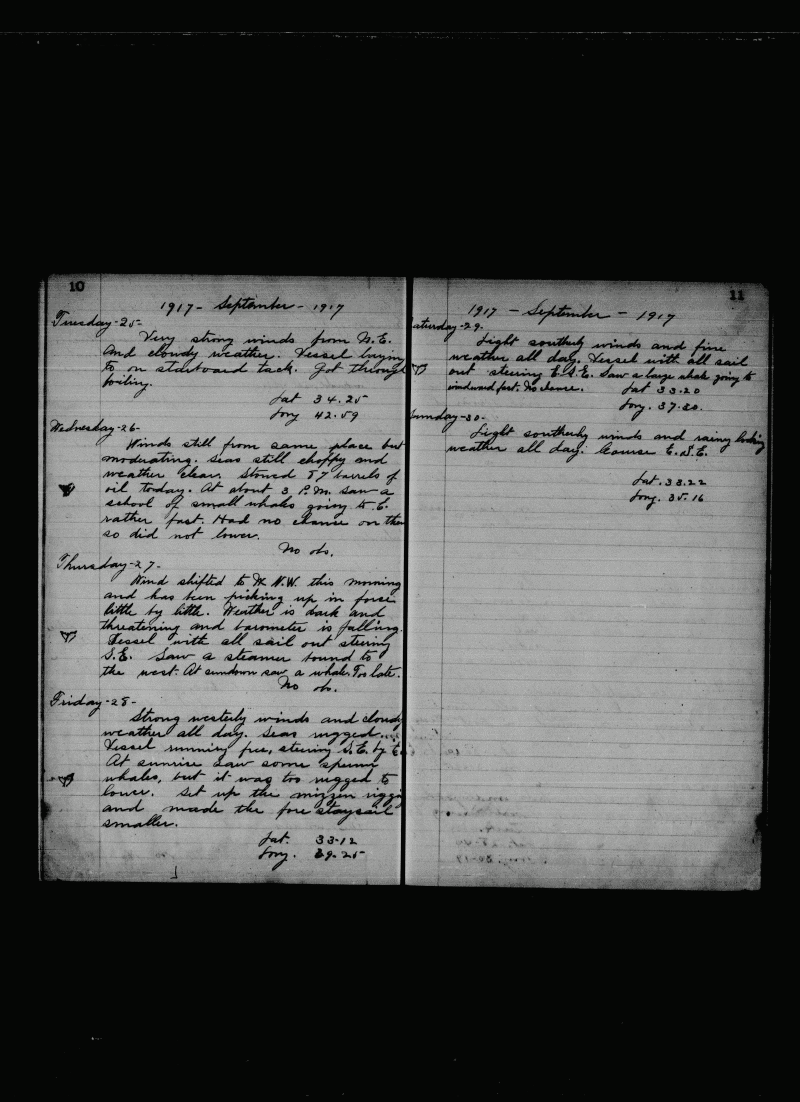 10
1917 - September - 1917
Tuesday - 25 -
Very strong winds from N.E.
and cloudy weather. Vessel laying
to on starboard tack. Got through
boiling.
Lat 34.25
Long 42.59
Wednesday - 26 -
Winds still from same place but
moderating. Seas still choppy and
weather clear. Stowed 87 barrels of
oil today. At about 3 P.M. saw a
school of small whales going to E.
rather fast. Had no chance on them
so did not lower.
No obs.
Thursday - 27 -
Wind shifted to W.N.W. this morning
and has been picking up in force
little by little. Weather is dark and
threatening and barometer is falling.
Vessel with all sail out steering
S.E. Saw a steamer bound to
the west. At sundown saw a whale. Too late.
No obs.
Friday - 28 -
Strong westerly winds and cloudy
weather all day. Seas rugged.
Vessel running free, steering S.E. by E.
At sunrise saw some sperm
whales, but it was too rugged to
lower. Set up the mizzen
and made the fore staysail
smaller.
Lat. 33-12
Long. 39-25
11
1917 - September - 1917
Saturday - 29 -
Light southerly winds and fine
weather all day. Vessel with all sail
out steering E.S.E. Saw a large whale going to
windward fast. No chance. Lat 33.20
Long. 37-20.
Sunday - 30 -
Light southerly winds and rainy looking
weather all day. Course E.S.E.
Lat. 33.22
Long. 35.16